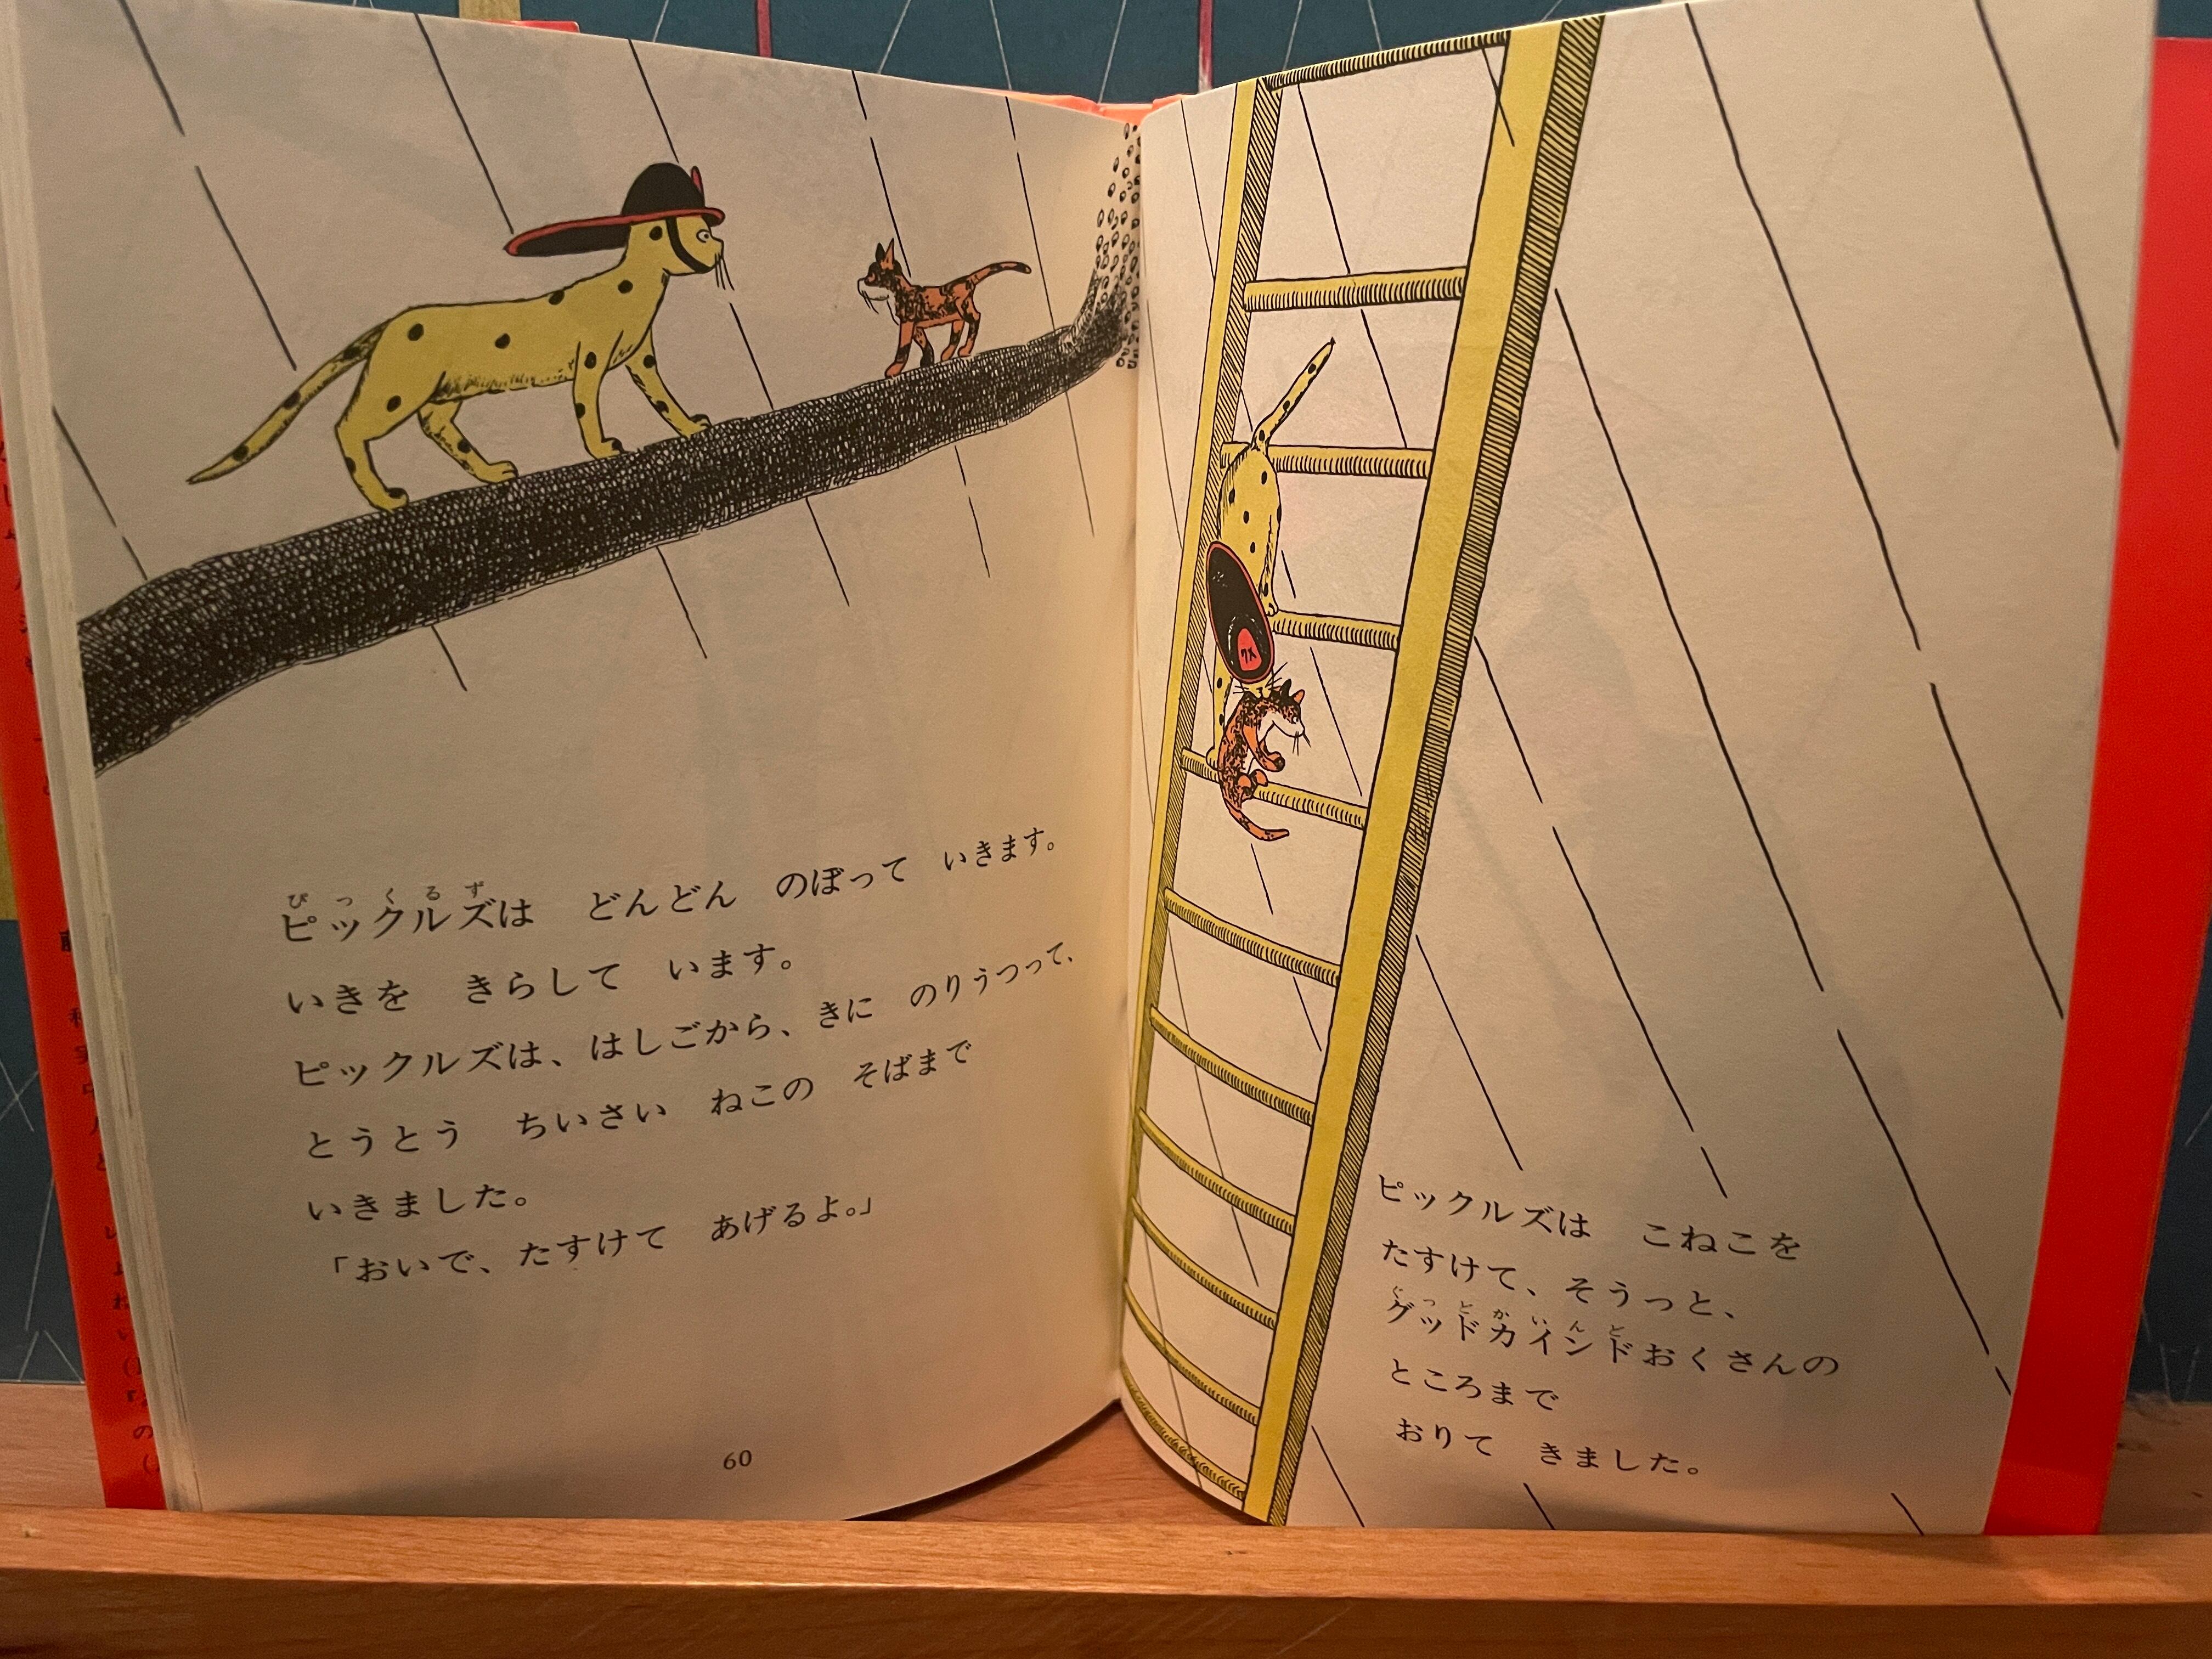 ピックルズは　どんどん　のぼって　いきます。
いきを　きらして　います。
ピックルズは、はしごから、きに　のりうつって、
とうとう　ちいさい　ねこの　そばまで
いきました。
「おいで、たすけて　あげるよ。」
60
ピックルズは　こねこを
たすけて、そうっと、
グッドカインドおくさんの
ところまで
おりて　きました。